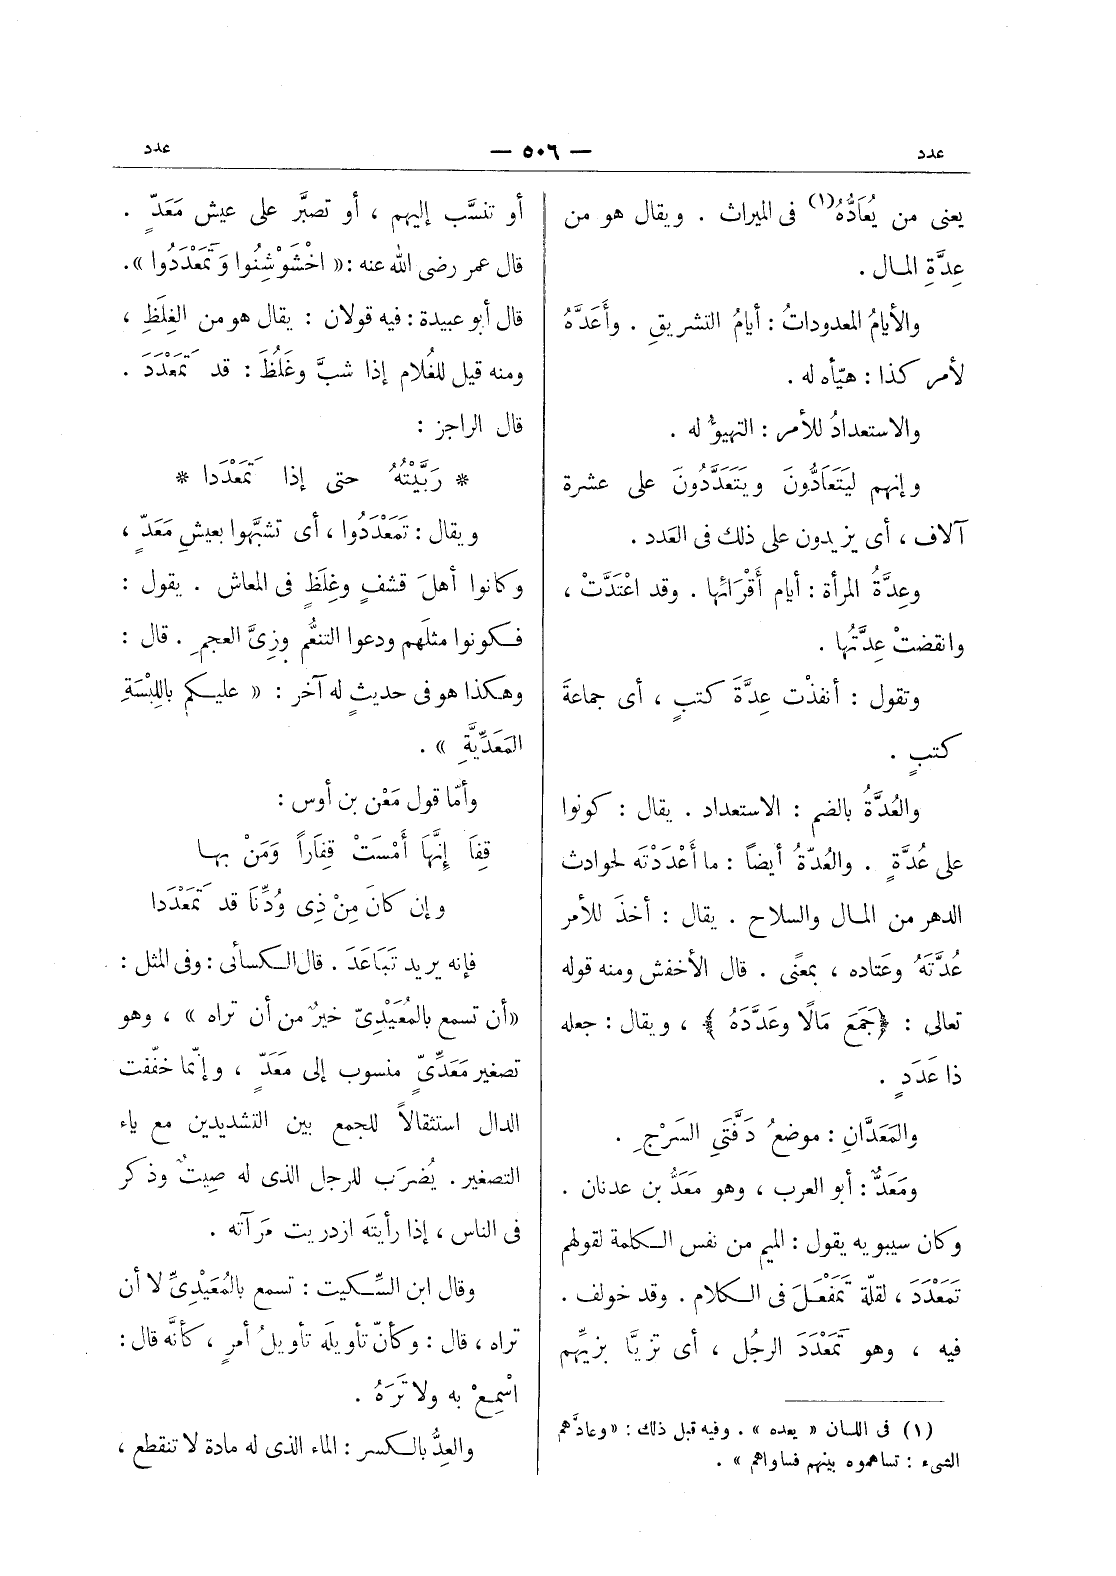 عدد
— ٥٠٦ —
عدد
يعنى من يُعَادُّهُ(١) فى الميراث . ويقال هو من
عِدَّةِ المال .
والأيامُ المعدوداتُ : أيامُ التشريقِ . وأَعَدَّهُ
لأمر كذا : هيّأه له .
والاستعدادُ للأمر : التهيؤ له .
وإنهم ليَتَعَادُّونَ ويَتَعَدَّدُونَ على عشرة
آلاف ، أى يزيدون على ذلك فى العَدد .
وعِدَّةُ المرأة : أيام أَقْرَائها . وقد اعْتَدَّتْ ،
وانقضتْ عِدَّتُها .
وتقول : أنفذْت عِدَّةَ كتبٍ ، أى جماعةَ
كتبٍ .
والعُدَّةُ بالضم : الاستعداد . يقال : كونوا
على عُدَّةٍ . والعُدّةُ أيضاً : ما أَعْدَدْتَه لحوادث
الدهر من المال والسلاح . يقال : أخذَ للأمر
عُدَّتَهُ وعَتاده ، بمعنًى . قال الأخفش ومنه قوله
تعالى : ﴿جَمَعَ مَالًا وعَدَّدَهُ﴾ ، ويقال : جعله
ذا عَدَدٍ .
والمَعَدَّانِ : موضعُ دَفَّتَىِ السَرْجِ .
ومَعَدٌّ : أبو العرب ، وهو مَعَدُّ بن عدنان .
وكان سيبويه يقول : الميم من نفس الكلمة لقولهم
تَمَعْدَدَ ، لقلّة تَمَفْعَلَ فى الكلام . وقد خولف .
فيه ، وهو تَمَعْدَدَ الرجُل ، أى تزيَّا بزيِّهم
(١) فى اللسان « يعده » . وفيه قبل ذلك : « وعادَّهم
الشىء : تساهموه بينهم فساواهم » .
أو تنسَّب إليهم ، أو تصبَّر على عيش مَعَدٍّ .
قال عمر رضى الله عنه : « اخْشَوْشِنُوا وَتَمَعْدَدُوا » .
قال أبو عبيدة : فيه قولان : يقال هو من الغِلَظِ ،
ومنه قيل للغُلام إذا شبَّ وغَلُظَ : قد تَمَعْدَدَ .
قال الراجز :
* رَبَّيْتُهُ حتى إذا تَمَعْدَدا *
ويقال : تَمَعْدَدُوا ، أى تشبَّهوا بعيشِ مَعَدٍّ ،
وكانوا أهلَ قشفٍ وغِلَظٍ فى المعاش . يقول :
فكونوا مثلَهم ودعوا التنعُّم وزِىَّ العجمِ . قال :
وهكذا هو فى حديثٍ له آخر : « عليكم باللِبْسَةِ
المَعَدِّيَّةِ » .
وأمّا قول مَعْن بن أوس :
قِفَا إِنَّهَا أَمْسَتْ قِفَاراً وَمَنْ بها
وإن كَانَ مِنْ ذِى وُدِّنَا قد تَمَعْدَدا
فإنه يريد تَبَاعَدَ . قال الكسائى : وفى المثل :
« أن تسمع بالمُعَيْدِىّ خيرٌ من أن تراه » ، وهو
تصغير مَعَدِّىٍّ منسوب إلى مَعَدٍّ ، وإنّما خفّفت
الدال استثقالاً للجمع بين التشديدين مع ياء
التصغير . يُضرَب للرجل الذى له صِيتٌ وذكر
فى الناس ، إذا رأيتَه ازدريت مَرآته .
وقال ابن السِّكيت : تسمع بالمُعَيْدِىِّ لا أن
تراه ، قال : وكأنّ تأويلَه تأويلُ أمرٍ ، كأنَّه قال :
اسْمِعْ به ولا تَرَهُ .
والعِدُّ بالكسر : الماء الذى له مادة لا تنقطع ،